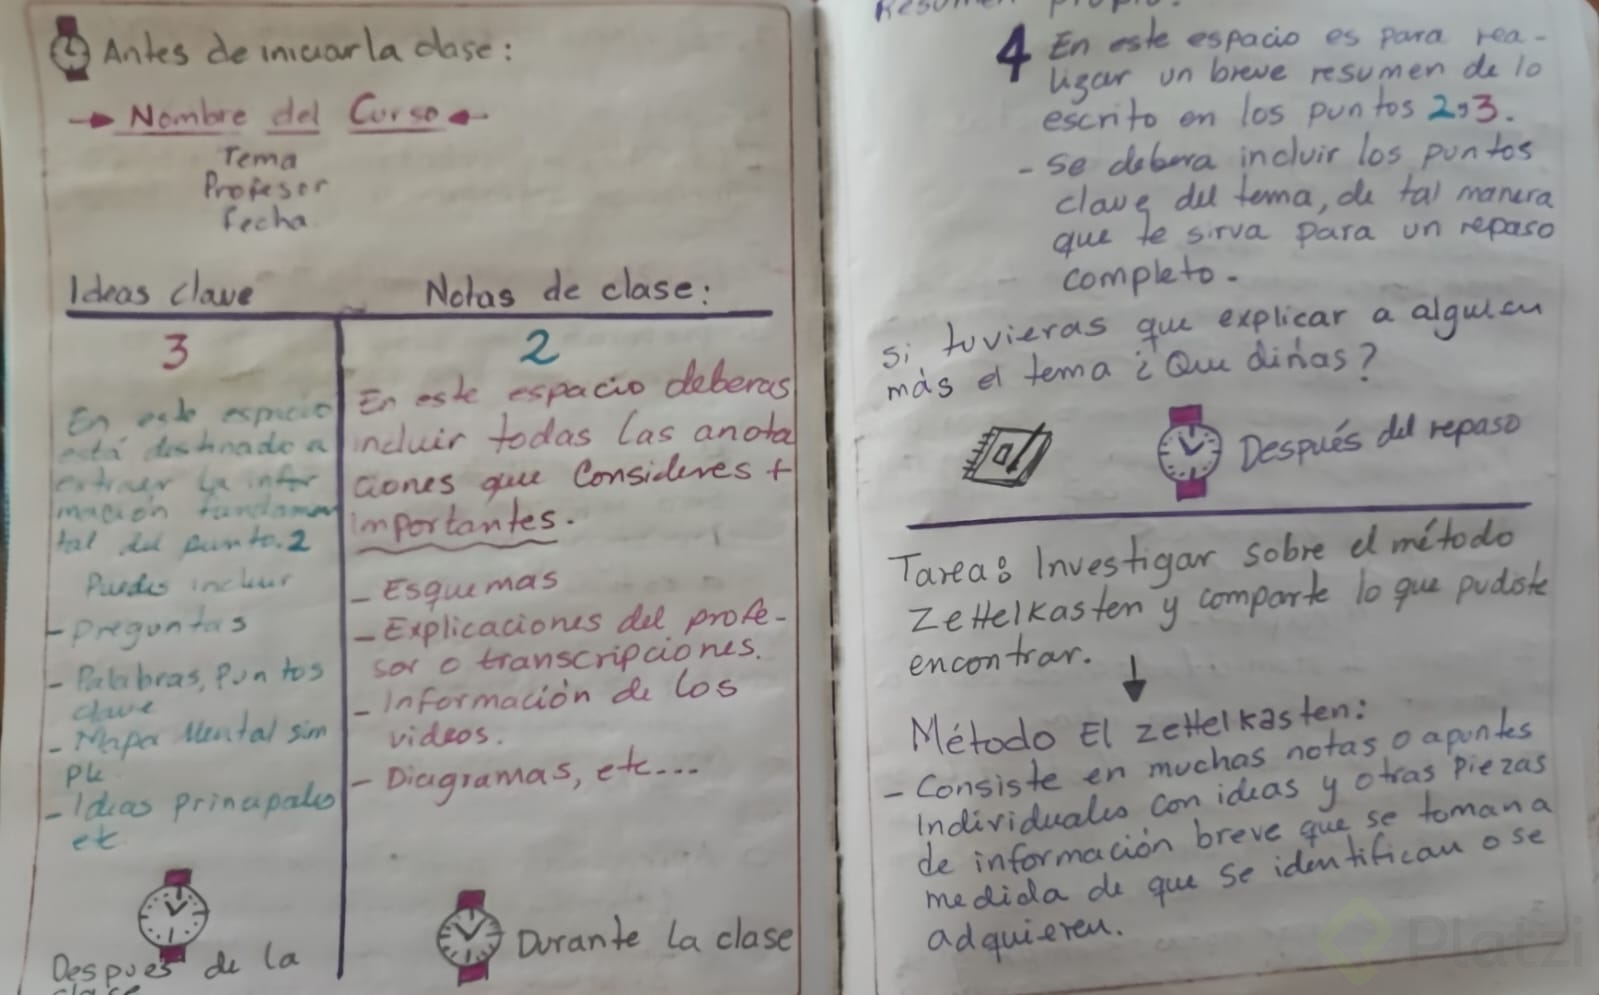 Antes de iniciar la clase:
Nombre del Curso
Tema
Profesor
Fecha
Ideas clave
3
En este espacio
está destinado a
extraer la infor
mación fundamen
tal del punto. 2
Puedes incluir
- Preguntas
- Palabras, Puntos
clave
- Mapa Mental sim
ple
- Ideas principales
etc
Despues de la
clase
Notas de clase:
2
En este espacio deberas
incluir todas las anota
ciones que Consideres +
importantes.
- Esquemas
- Explicaciones del profe-
sor o transcripciones.
- Información de los
videos.
- Diagramas, etc...
Durante la clase
Resumen propio:
4 En este espacio es para rea-
lizar un breve resumen de lo
escrito en los puntos 2,3.
- Se debera incluir los puntos
clave del tema, de tal manera
que te sirva para un repaso
completo.
Si tuvieras que explicar a alguien
más el tema ¿Que dirías?
Después del repaso
Tarea: Investigar sobre el método
Zettelkasten y comparte lo que pudiste
encontrar.
Método El zettelkasten:
- Consiste en muchas notas o apuntes
Individuales con ideas y otras piezas
de información breve que se toman a
medida de que se identifican o se
adquieren.
Platzi